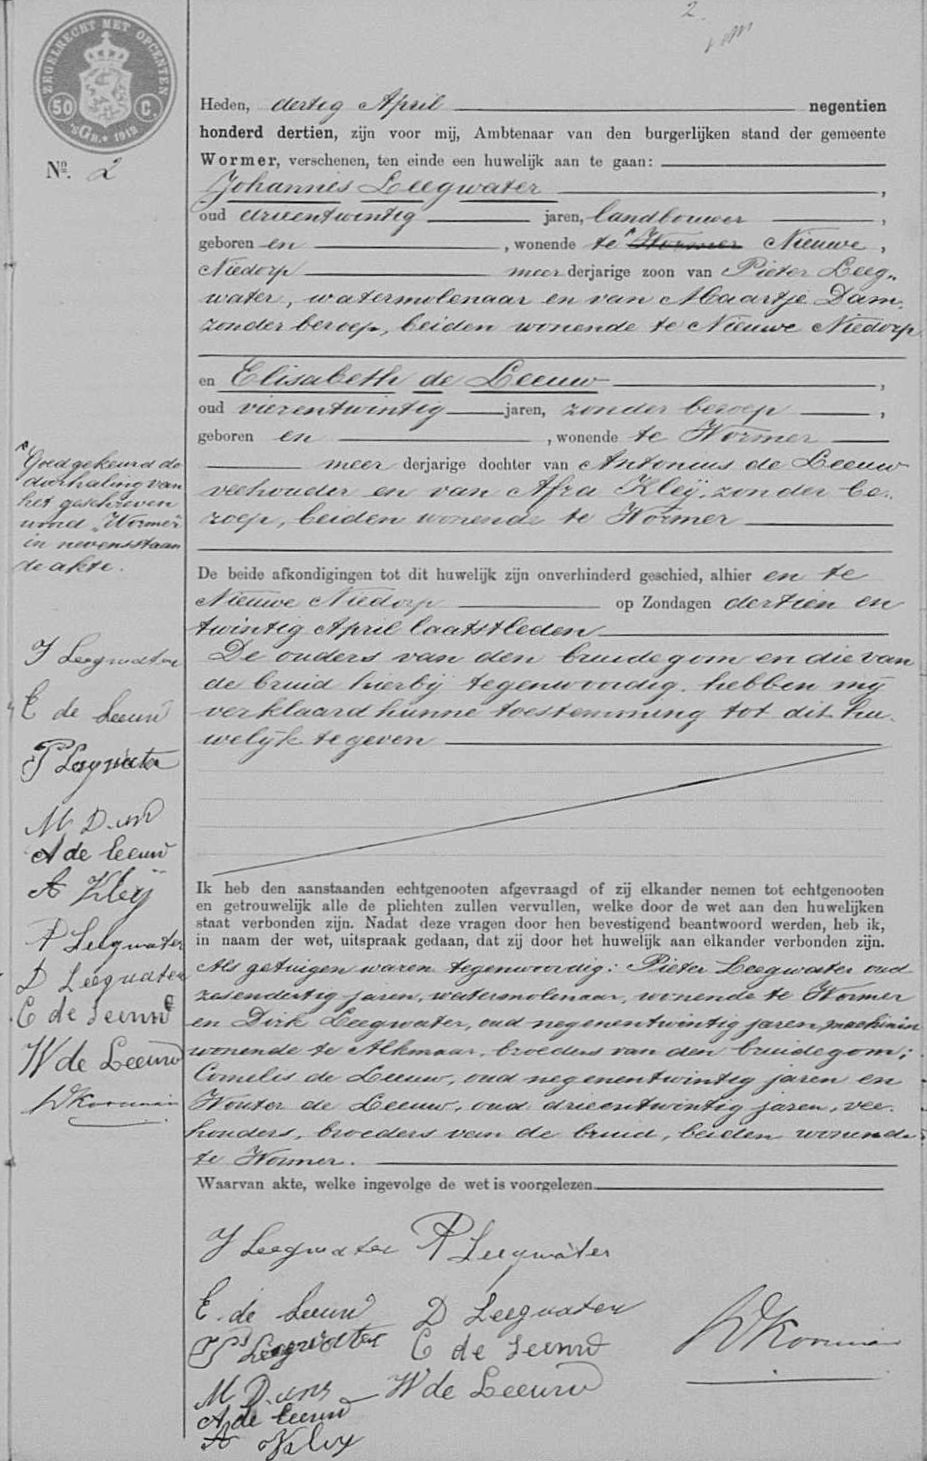 2
ZEGELRECHT MET OPCENTEN
50 C.
'sGR. 1912
Nº. 2
Heden, dertig April negentien
honderd dertien, zijn voor mij, Ambtenaar van den burgerlijken stand der gemeente
Wormer, verschenen, ten einde een huwelijk aan te gaan:
Johannes Leegwater,
oud drieentwintig jaren, landbouwer,
geboren en, wonende te Wormer Nieuwe,
Niedorp meerderjarige zoon van Pieter Leeg„
water, watermolenaar en van Maartje Dam,
zonder beroep, beiden wonende te Nieuwe Niedorp
en Elisabeth de Leeuw,
oud vierentwintig jaren, zonder beroep,
geboren en, wonende te Wormer
meer derjarige dochter van Antonius de Leeuw
veehouder en van Afra Kleÿ, zonder be„
roep, beiden wonende te Wormer
Goedgekeurd de
doorhaling van
het geschreven
woord „Wormer"
in nevenstaan
de akte.
De beide afkondigingen tot dit huwelijk zijn onverhinderd geschied, alhier en te
Nieuwe Niedorp op Zondagen dertien en
twintig April laatstleden
De ouders van den bruidegom en die van
de bruid hierbij tegenwoordig, hebben mij
verklaard hunne toestemming tot dit hu„
welijk te geven
J Leegwater
E de Leeuw
P Leegwater
M Dam
A de Leeuw
A Kleÿ
P Leegwater
D Leegwater
C de Leeuw
W de Leeuw
Ik heb den aanstaanden echtgenooten afgevraagd of zij elkander nemen tot echtgenooten
en getrouwelijk alle de plichten zullen vervullen, welke door de wet aan den huwelijken
staat verbonden zijn. Nadat deze vragen door hen bevestigend beantwoord werden, heb ik,
in naam der wet, uitspraak gedaan, dat zij door het huwelijk aan elkander verbonden zijn.
Als getuigen waren tegenwoordig: Pieter Leegwater oud
zesendertig jaren, watermolenaar, wonende te Wormer
en Dirk Leegwater, oud negenentwintig jaren, machinist
wonende te Alkmaar, broeders van den bruidegom;
Cornelis de Leeuw, oud negenentwintig jaren en
Wouter de Leeuw, oud drieentwintig jaren, vee„
houders, broeders van de bruid, beiden wonende
te Wormer.
Waarvan akte, welke ingevolge de wet is voorgelezen
J Leegwater P Leegwater
E. de Leeuw D Leegwater
P Leegwater C de Leeuw
M Dam W de Leeuw
A de Leeuw
A Kleÿ